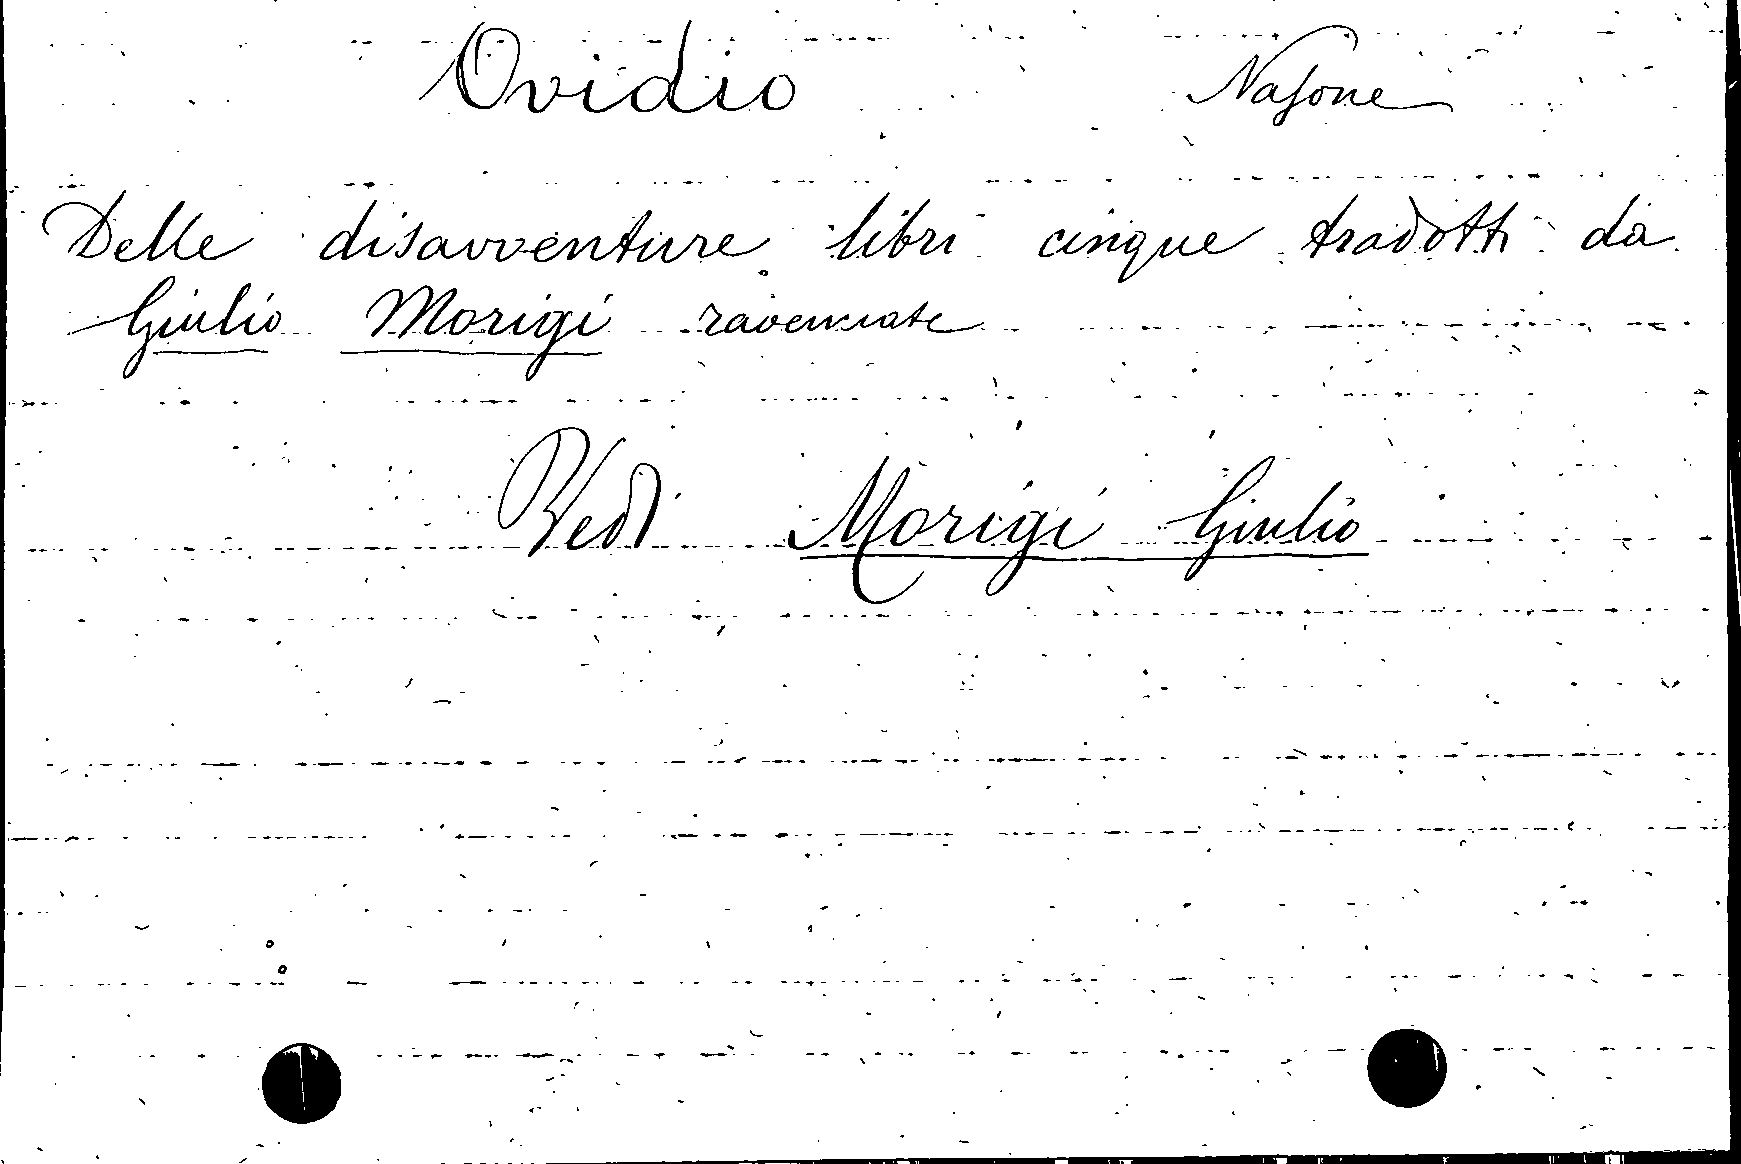 Ovidio Nasone
Delle disavventure libri cinque tradotti da
Giulio Morigi ravennate
Vedi Morigi Giulio